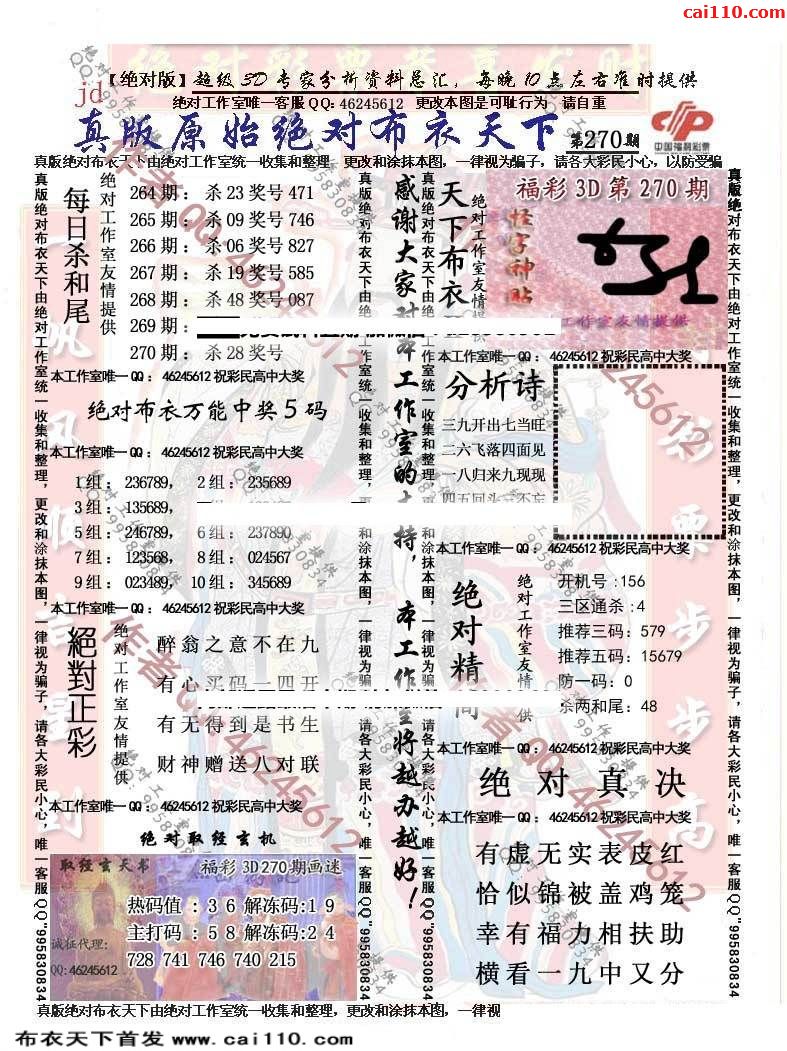 cai110.com
【绝对版】超级3D专家分析资料总汇,每晚10点左右准时提供
jd
绝对工作室唯一客服QQ:46245612 更改本图是可耻行为 请自重
真版原始绝对布衣天下 第270期
中国福利彩票
真版绝对布衣天下由绝对工作室统一收集和整理,更改和涂抹本图,一律视为骗子,请各大彩民小心,以防受骗
真版绝对布衣天下由绝对工作室统一收集和整理,更改和涂抹本图,一律视为骗子,请各大彩民小心,唯一客服QQ"995830834
每日杀和尾
绝对工作室友情提供
264期:杀23奖号471
265期:杀09奖号746
266期:杀06奖号827
267期:杀19奖号585
268期:杀48奖号087
269期:
270期:杀28奖号
本工作室唯一QQ:46245612祝彩民高中大奖
绝对布衣万能中奖5码
本工作室唯一QQ:46245612祝彩民高中大奖
1组:236789, 2组:235689
3组:135689,
5组:246789, 6组:237890
7组:123568, 8组:024567
9组:023489, 10组:345689
本工作室唯一QQ:46245612祝彩民高中大奖
絕對正彩
绝对工作室友情提供
醉翁之意不在九
有心买码一四开
有无得到是书生
财神赠送八对联
本工作室唯一QQ:46245612祝彩民高中大奖
绝对取经玄机
取经玄天书 福彩3D270期画迷
热码值:36解冻码:19
主打码:58解冻码:24
728 741 746 740 215
诚征代理:
QQ:46245612
感谢大家对本工作室的支持,本工作室将越办越好!
天下布衣
绝对工作室友情提供
福彩3D第270期
怪字神贴
工作室友情提供
本工作室唯一QQ:46245612祝彩民高中大奖
分析诗
三九开出七当旺
二六飞落四面见
一八归来九现现
四五回头三不忘
本工作室唯一QQ:46245612祝彩民高中大奖
绝对精简
绝对工作室友情提供
开机号:156
三区通杀:4
推荐三码:579
推荐五码:15679
防一码:0
杀两和尾:48
本工作室唯一QQ:46245612祝彩民高中大奖
绝对真决
本工作室唯一QQ:46245612祝彩民高中大奖
有虚无实表皮红
恰似锦被盖鸡笼
幸有福力相扶助
横看一九中又分
真版绝对布衣天下由绝对工作室统一收集和整理,更改和涂抹本图,一律视
布衣天下首发 www.cai110.com